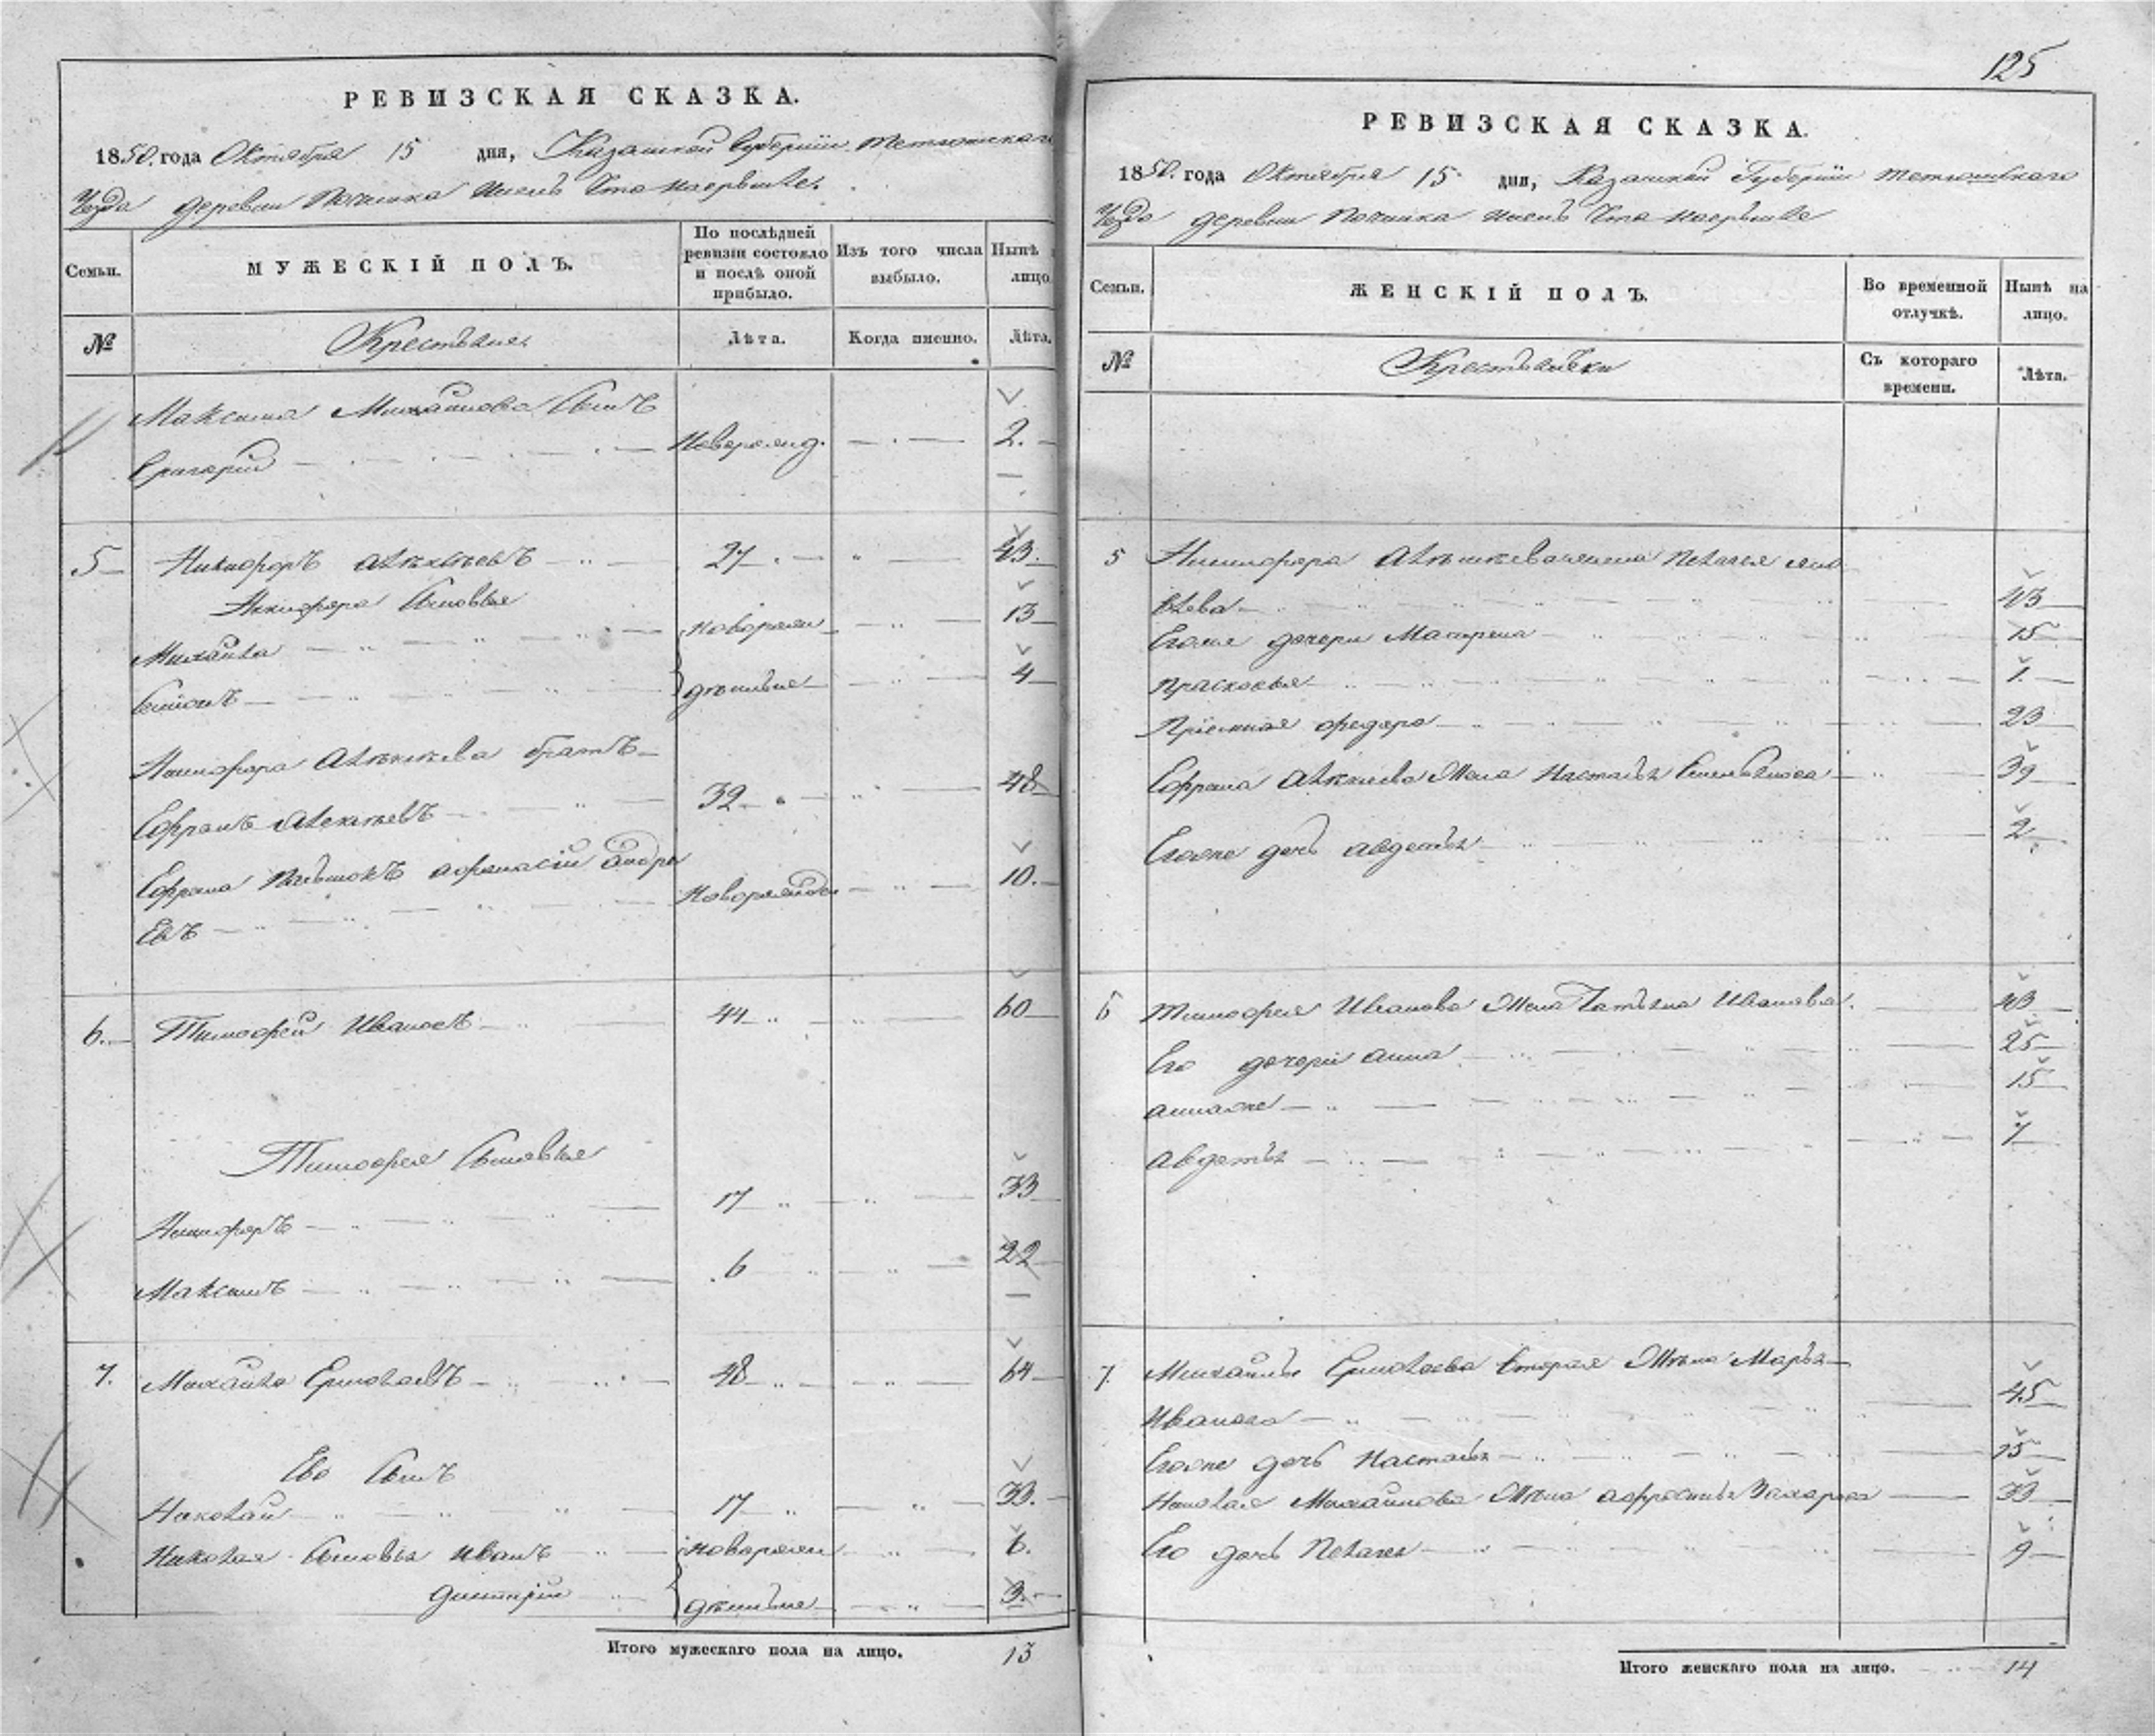 125
РЕВИЗСКАЯ СКАЗКА.
1850 года Октября 15 дня, Казанской Губернии Тетюшскаго
Уезда деревни Починка
Семьи.
МУЖЕСКІЙ ПОЛЪ.
По послѣдней ревизіи состояло и послѣ оной прибыло.
Изъ того числа выбыло.
Нынѣ лицо
№
Крестьяне
Лѣта.
Когда именно.
Лѣта.
Максима Михайлова Сынъ
Григорій Новорожд. 2.
5 Никифоръ Алексѣевъ 27 43.
Никифора Сыновья
Михайла новорож 13
Семіонъ дѣнные 4
Никифора Алексѣева братъ
Ефремъ Алексѣевъ 32 48
Ефрема Афонасіи Андре
евъ 10.
6. Тимофей Ивановъ 44 60
Тимофея Сыновья
Никифоръ 17 33
Максимъ 6 22
7. Михайла Ермолаевъ 48 64
Ево Сынъ
Николай 17 33.
Николая Сыновья Иванъ новорож 6.
Дмитріи дѣнные 3.
Итого мужескаго пола на лицо. 13
РЕВИЗСКАЯ СКАЗКА.
1850 года Октября 15 дня, Казанской Губерніи Тетюшскаго
Уезда деревни Починка
Семьи.
ЖЕНСКІЙ ПОЛЪ.
Во временной отлучкѣ.
Нынѣ на лицо.
№
Крестьянки
Съ котораго времени.
Лѣта.
5 Никифора Алексѣева жена Пелагея
43
Егоже дочери Матрена 15
Прасковья 7.
Федора 23
Ефрема Алексѣева Жена Настасья Емельянова 39
Егоже дочь Авдотья 2
6 Тимофея Иванова Жена Татьяна Иванова. 43
Его дочери Анна 25
Аннаже 15
Авдотья 7
7. Михайлы Ермолаева вторая Жена Марья
Иванова 45
Егоже дочь Настасья 15
Николая Михайлова Жена Афросинья Захарова 33
Его дочь Пелагея 9
Итого женскаго пола на лицо. 14